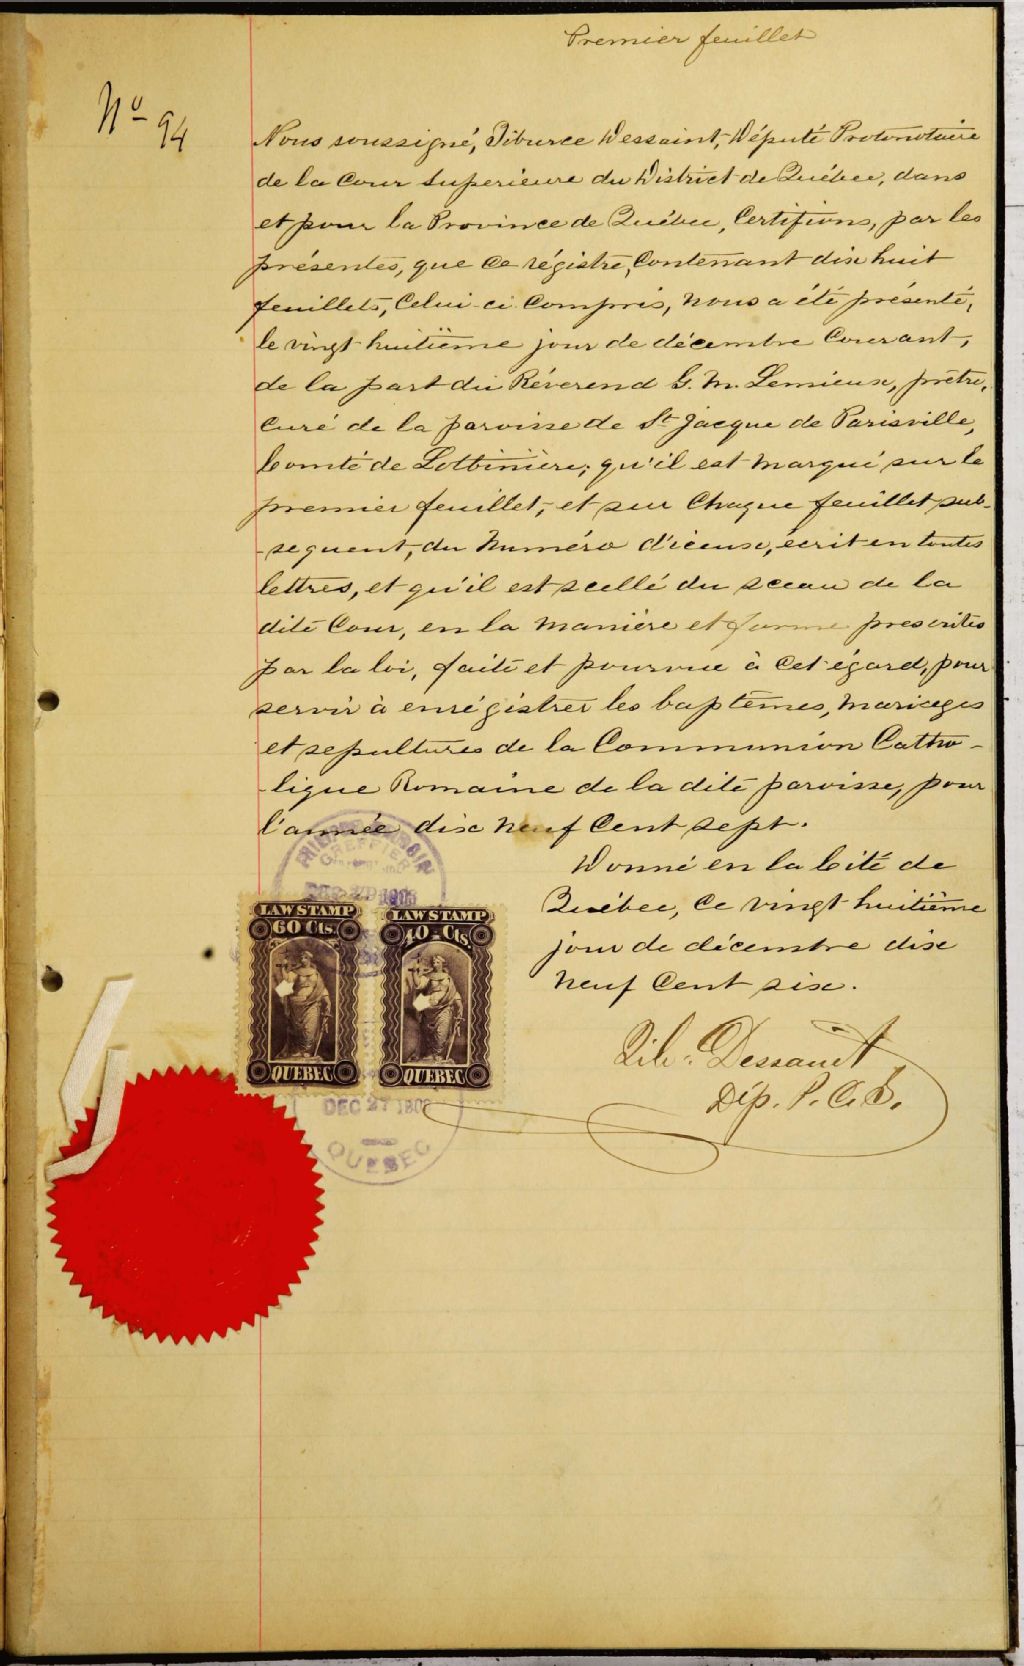 Premier feuillet
No 94
Nous soussigné, Tiburce Dessaint, Député Protonotaire
de la Cour Superieure du District de Québec, dans
et pour la Province de Québec, Certifions, par les
présentes, que ce régistre, Contenant dix huit
feuillets, Celui-ci Compris, nous a été présenté,
le vingt huitième jour de décembre Courant,
de la part du Réverend G. M. Lemieux, prêtre,
Curé de la paroisse de St Jacque de Parisville,
Comté de Lotbinière; qu'il est marqué sur le
premier feuillet, et sur Chaque feuillet sub-
-sequent, du Numéro d'iceux, écrit en toutes
lettres, et qu'il est scellé du sceau de la
dite Cour, en la manière et forme prescrites
par la loi, faite et pourvue à cet égard, pour
servir à enrégistrer les baptêmes, mariages
et sepultures de la Communion Catho-
-lique Romaine de la dite paroisse, pour
l'année dix neuf Cent sept.
Donné en la Cité de
Québec, Ce vingt huitième
jour de décembre dix
neuf Cent six.
GREFFIER
LAW STAMP LAW STAMP
60 Cts. 40 Cts.
QUEBEC QUEBEC
Tib. Dessaint
Dép. P. C. S.
DEC 27 190
QUEBEC